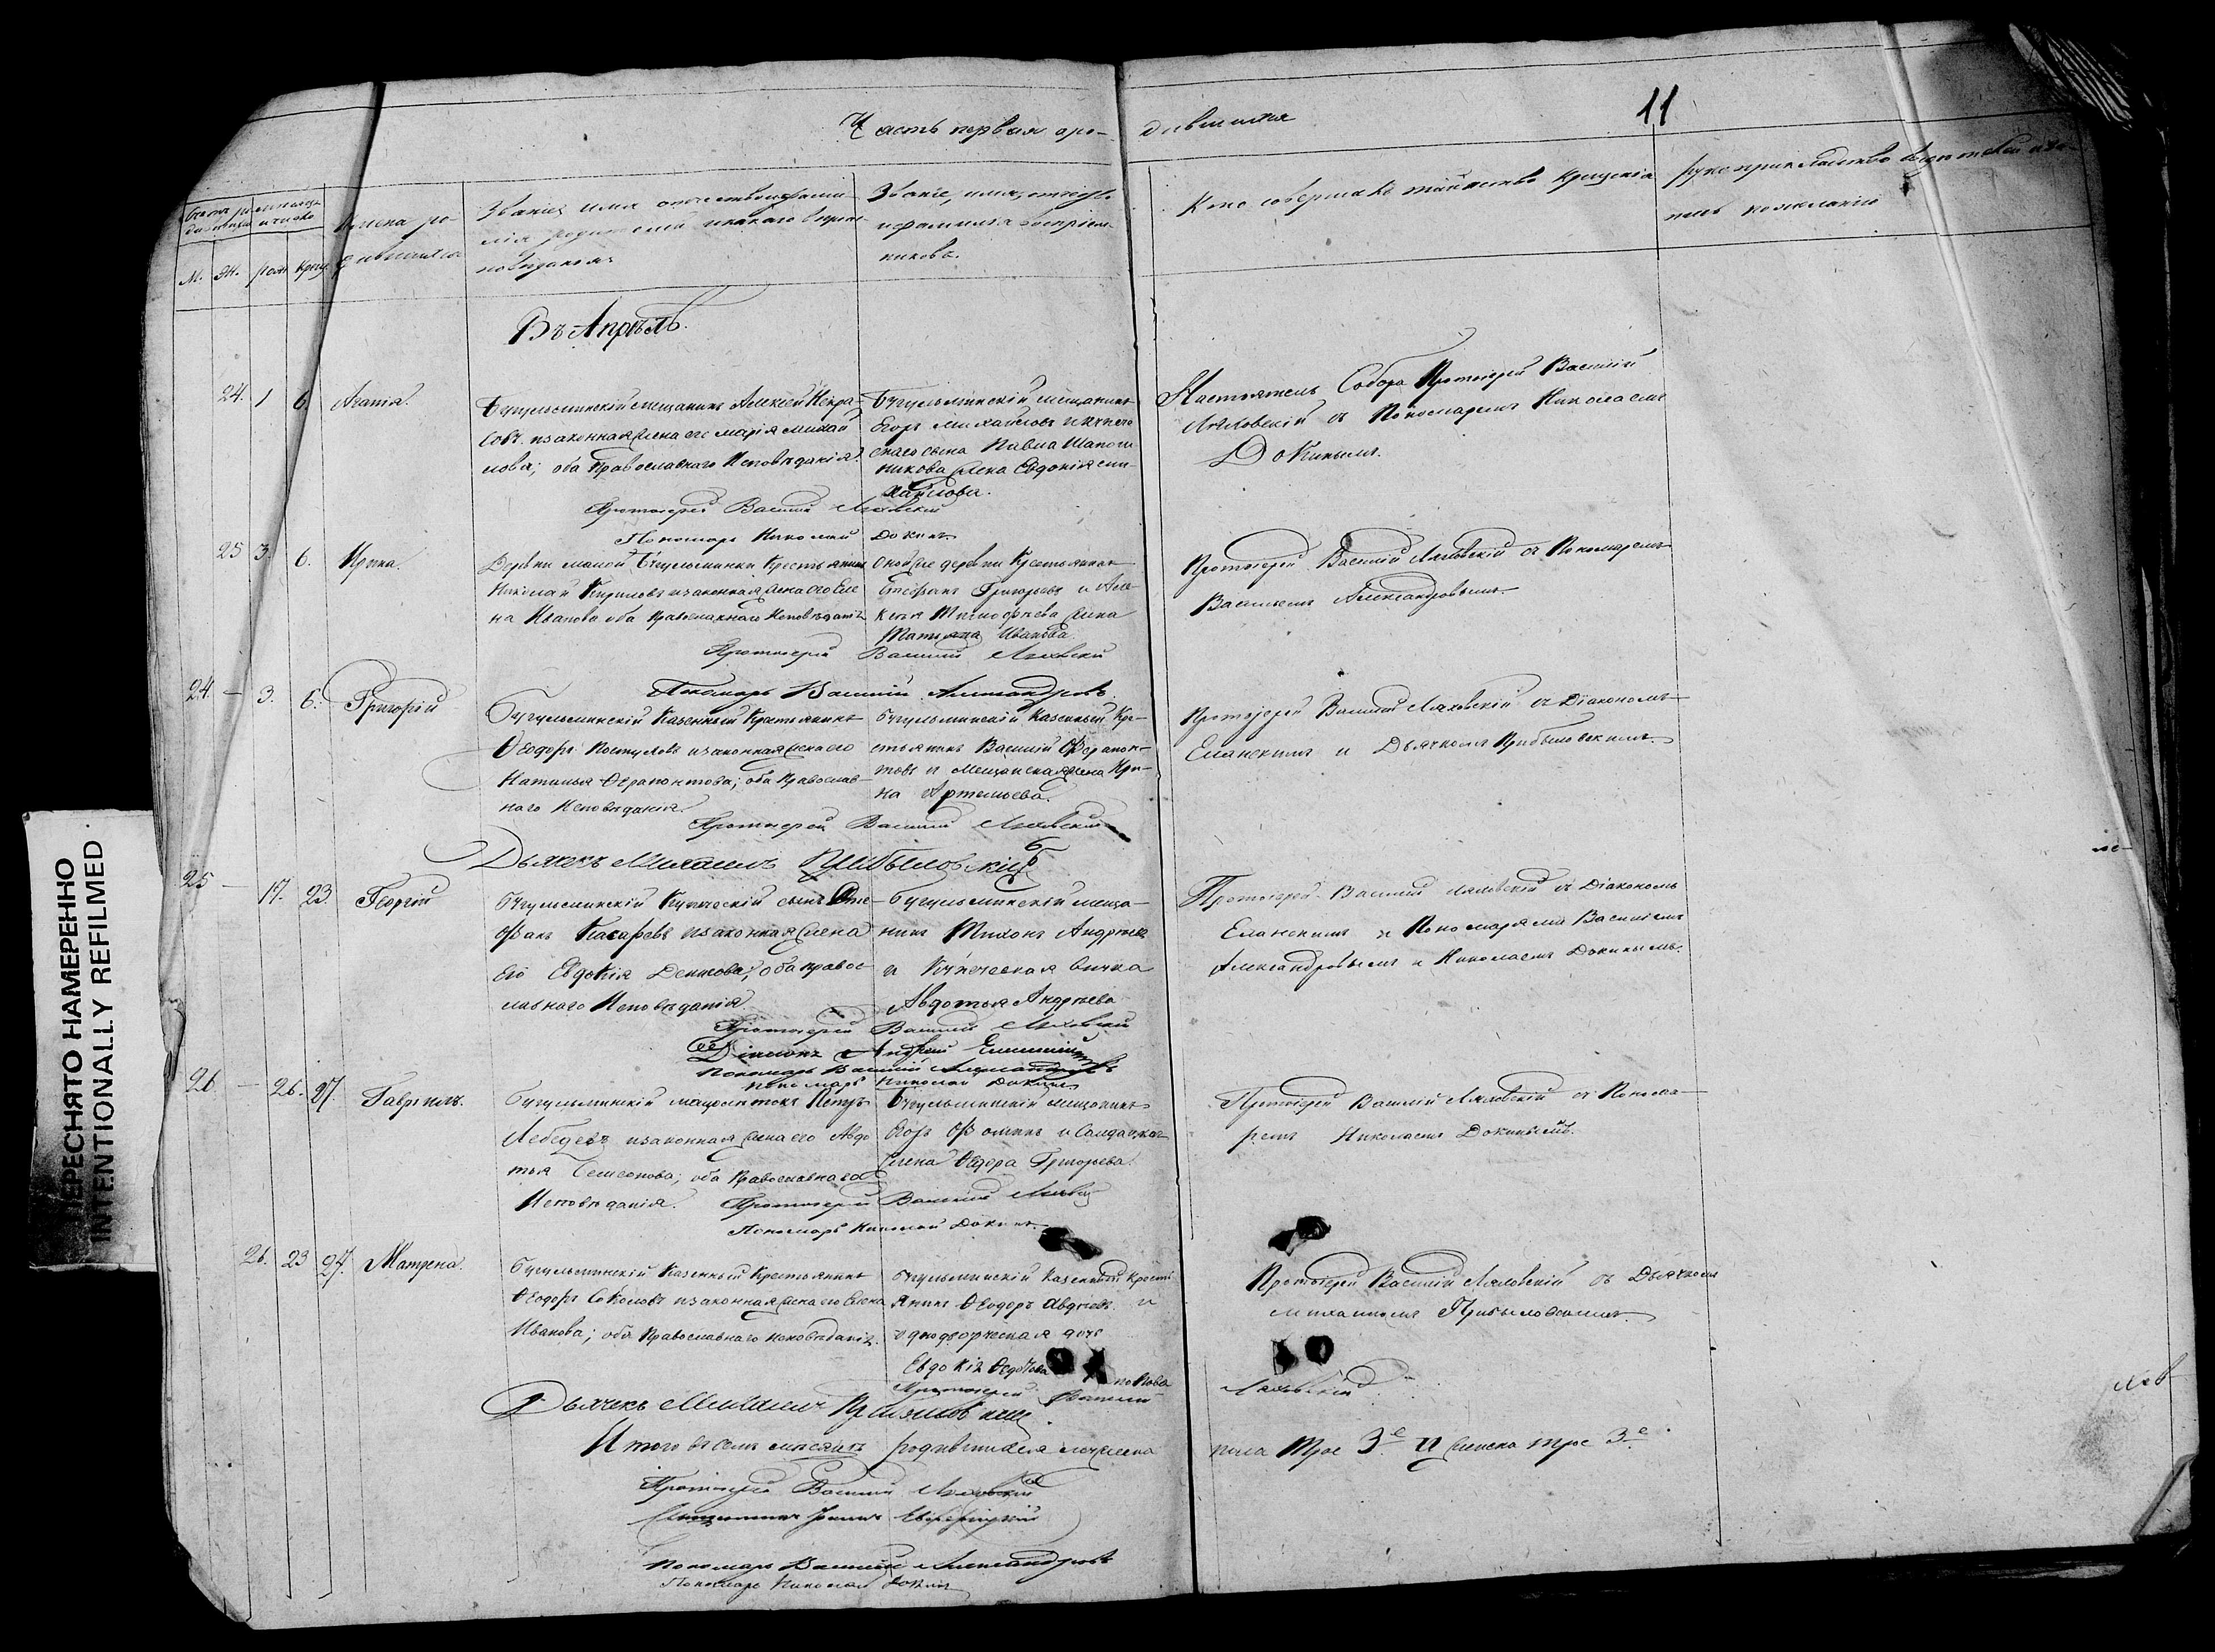 Часть первая о ро- дившихся
11
М. Ж. рожд. крещ.
Имена ро-
дившихся
Званіе, имя, отчество
и фамилія воспріем-
никовъ.
Кто совершалъ таинство крещенія
рукоприкладство
по желанію
Въ Апрѣлѣ.
24. 1 6.
Бугульминскій мещанинъ Алексѣй Некра-
совъ и законная жена его Марія Михай
лова; оба Православнаго Исповѣданія.
Бугульминскій мещанинъ
Егоръ Михайловъ и купече
скаго сына Павла Шапош
никова жена Евдокія Ми-
хайлова.
Настоятель Собора Протоіерей Василій
Ляховскій съ Пономаремъ Николаемъ
Докинымъ.
Протоіерей Василій Ляховскій
Пономарь Николай Докинъ
25 3. 6. Ирина.
Деревни малой Бугульминки Крестьянинъ
Николай Кириловъ и законная жена его Еле
на Иванова оба Православнаго Исповѣданія
Оной же деревни Крестьянинъ
Стефанъ Григорьевъ и Але-
ксѣя Тимофѣева жена
Татьяна Иванова.
Протоіерей Василій Ляховскій съ Пономаремъ
Василіемъ Александровымъ.
Протоіерей Василій Ляховскій
Пономарь Василій Александровъ.
24. — 3. 6. Григорій
Бугульминскій Казенный Крестьянинъ
Ѳеодоръ и законная жена его
Наталья Ѳерапонтова; оба Православ-
наго Исповѣданія.
Бугульминскій Казенный Кре-
стьянинъ Василій Ферапон-
товъ и Мещанская жена Ири-
на Артемьева.
Протоіерей Василій Ляховскій съ Діакономъ
Еланскимъ и Дьячкомъ Прибыловскимъ.
Протоіерей Василій Ляховскій
Дьячекъ Михаилъ Прибыловскій
25 — 17. 23. Георгій
Бугульминскій Купеческій сынъ Сте-
фанъ и законная жена
его Евдокія Денисова; оба Правос-
лавнаго Исповѣданія
Бугульминскій меща-
нинъ Тихонъ Андреевъ
и Купеческая внучка
Авдотья Андреева
Протоіерей Василій Ляховскій съ Діакономъ
Еланскимъ и Пономарями Василіемъ
Александровымъ и Николаемъ Докинымъ.
Протоіерей Василій Ляховскій
Діаконъ Андрей Еланскій
Пономарь Василій Александровъ
Пономарь Николай Докинъ
26. — 26. 27. Гавріилъ.
Бугульминскій Петръ
Лебедевъ и законная жена его Авдо
тья Семенова; оба Православнаго
Исповѣданія.
Бугульминскій мещанинъ
Егоръ Фоминъ и Солдатская
жена Ѳедора Григорьева.
Протоіерей Василій Ляховскій съ Понома-
ремъ Николаемъ Докинымъ.
Протоіерей Василій Ляховскій
Пономарь Николай Докинъ
26. 23 27. Матрена.
Бугульминскій Казенный Крестьянинъ
Ѳеодоръ Соколовъ и законная жена его Елена
Иванова; оба Православнаго Исповѣданія.
Бугульминскій Казенный Кресть
янинъ Ѳеодоръ Авдѣевъ и
однодворческая дочь
Евдокія Ѳедотова
Протоіерей Василій Ляховскій съ Дьячкомъ
Михаиломъ Прибыловскимъ.
Протоіерей Василій Ляховскій
Дьячекъ Михаилъ Прибыловскій
Итого въ семъ мѣсяцѣ родившихся мужеска
пола трое 3е и женска трое 3е.
Протоіерей Василій Ляховскій
Пономарь Василій Александровъ
Пономарь Николай Докинъ
ПЕРЕСНЯТО НАМЕРЕННО
INTENTIONALLY REFILMED